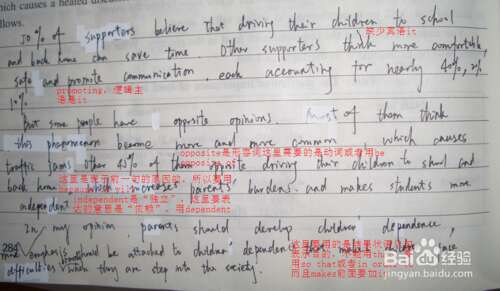 which causes a heated discu
llows.
50% of supporters believe that driving their children to school 缺少宾语it
and back home can save time. Other supporters think more comfortable,
safe and promote communication, each accounting for nearly 40%, 2%
promoting, 逻辑主
语是it
10%
But some people have opposite opinions. most of them think
this phenomenon become more and more common which causes
opposite是形容词这里需要的是动词或者用be
traffic jams. Other 43% of them opposite driving their children to school and
opposite of
这里是表示前一句的原因的，所以要用
back home which increases parents' burdens. and makes students more
independent是“独立”，这里要表
达的意思是“依赖”，用dependent
independent
In my opinion, parents should develop children' dependence,
more emphasis should be attached to children' dependence that make children face
284
用so that或者in or
而且makes前面要加i
difficulties when they are step into the society.
Baidu 经验
jingyan.baidu.com